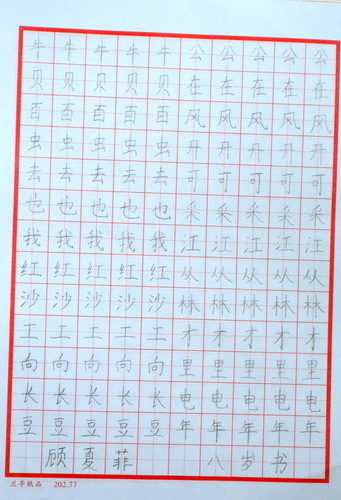 牛牛牛牛牛公公公公公
贝贝贝贝贝在在在在在
百百百百百风风风风风
虫虫虫虫虫丹丹丹丹丹
去去去去去可可可可可
也也也也也采采采采采
我我我我我江江江江江
红红红红红从从从从从
沙沙沙沙沙林林林林林
工工工工工才才才才才
向向向向向里里里里里
长长长长长电电电电电
豆豆豆豆豆年年年年年
顾夏菲 八岁书
兰亭纸品 202.77